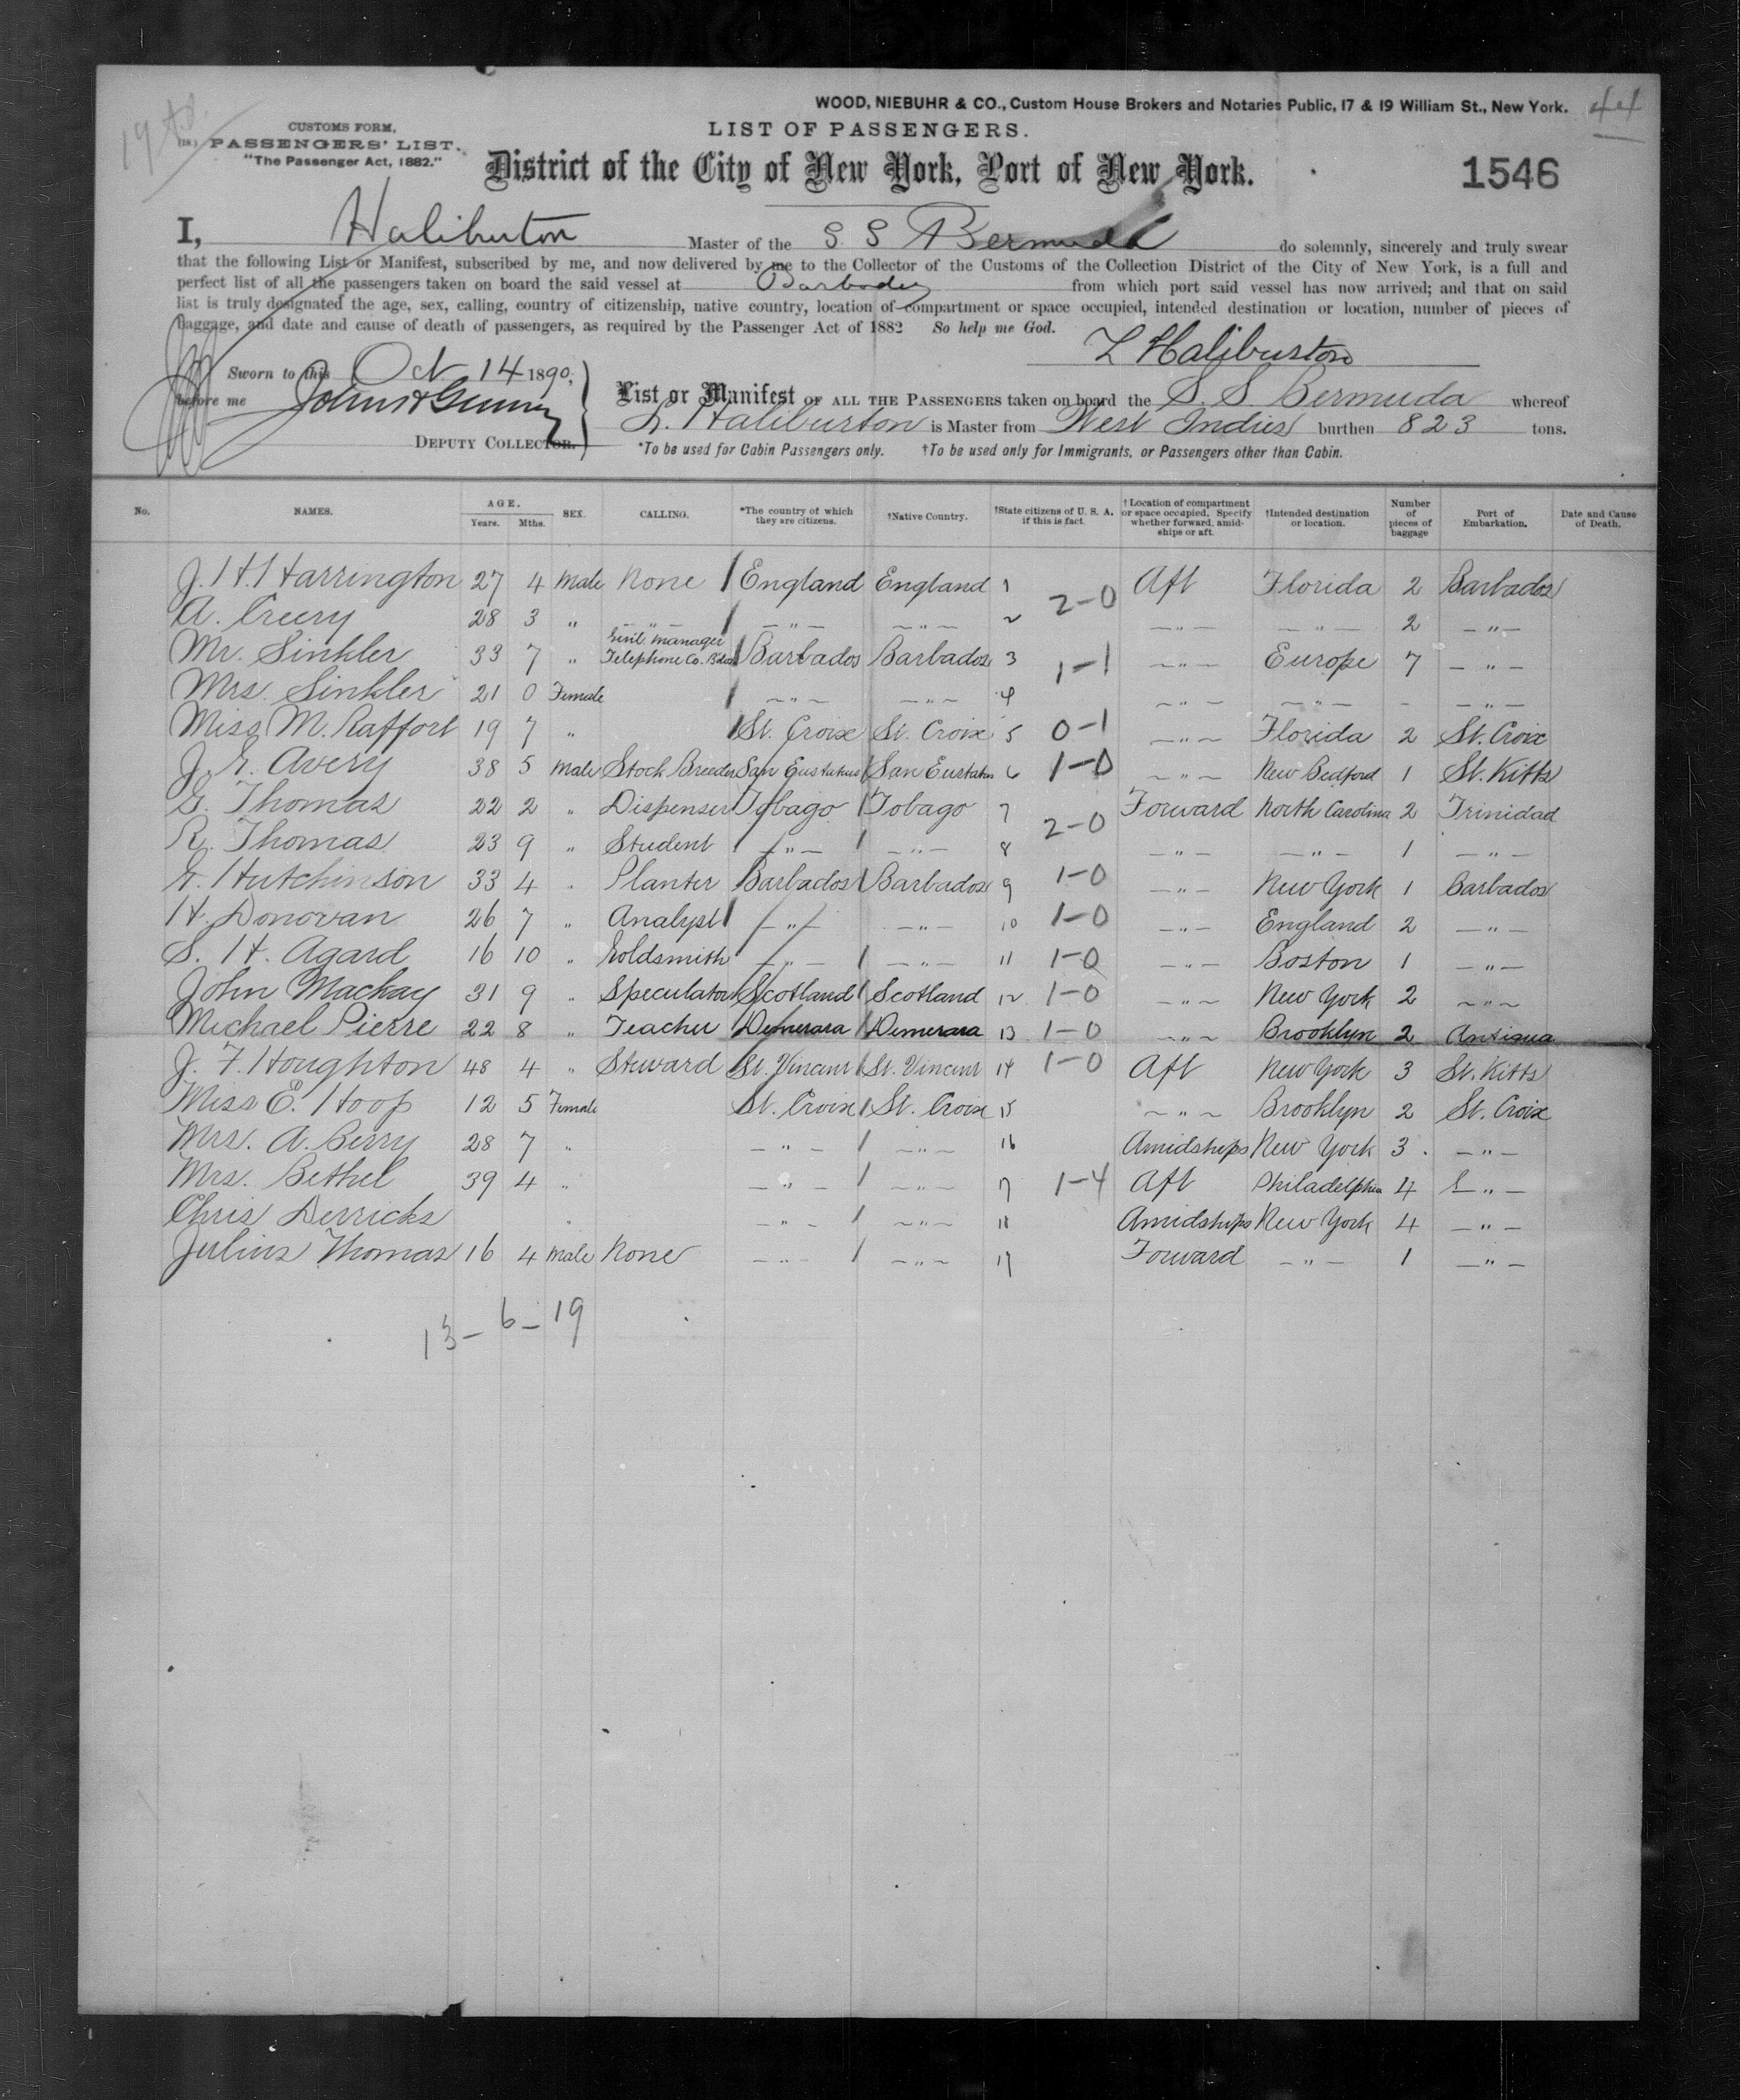 WOOD, NIEBUHR & CO., Custom House Brokers and Notaries Public, 17 & 19 William St., New York. 44
CUSTOMS FORM,
PASSENGERS' LIST.
"The Passenger Act, 1882."
LIST OF PASSENGERS.
District of the City of New York, Port of New York.
1546
I, Haliburton Master of the S. S Bermuda do solemnly, sincerely and truly swear
that the following List or Manifest, subscribed by me, and now delivered by me to the Collector of the Customs of the Collection District of the City of New York, is a full and
perfect list of all the passengers taken on board the said vessel at Barbados from which port said vessel has now arrived; and that on said
list is truly designated the age, sex, calling, country of citizenship, native country, location of compartment or space occupied, intended destination or location, number of pieces of
baggage, and date and cause of death of passengers, as required by the Passenger Act of 1882 So help me God.
L Haliburton
Sworn to this Oct 14 1890,
before me
DEPUTY COLLECTOR.
List or Manifest OF ALL THE PASSENGERS taken on board the S. S. Bermuda whereof
L. Haliburton is Master from West Indies burthen 823 tons.
*To be used for Cabin Passengers only. †To be used only for Immigrants, or Passengers other than Cabin.
No. NAMES. AGE. Years. Mths. SEX. CALLING. *The country of which they are citizens. †Native Country. †State citizens of U. S. A. if this is fact. †Location of compartment or space occupied. Specify whether forward, amidships or aft. †Intended destination or location. Number of pieces of baggage Port of Embarkation. Date and Cause of Death.
J. H. Harrington 27 4 Male None England England 1 2-0 Aft Florida 2 Barbados
A. Creery 28 3 " — " — — " — — " — 2 — " — — " — 2 — " —
Mr. Sinkler 33 7 " Genl Manager Telephone Co. B'dos Barbados Barbados 3 1-1 — " — Europe 7 — " —
Mrs. Sinkler 21 0 Female — " — — " — 4 — " — — " — - — " —
Miss M. Raffort 19 7 " St. Croix St. Croix 5 0-1 — " — Florida 2 St. Croix
J. E. Avery 38 5 Male Stock Breeder San Eustatius San Eustatius 6 1-0 — " — New Bedford 1 St. Kitts
G. Thomas 22 2 " Dispenser Tobago Tobago 7 2-0 Forward North Carolina 2 Trinidad
R. Thomas 23 9 " Student — " — — " — 8 — " — — " — 1 — " —
G. Hutchinson 33 4 " Planter Barbados Barbados 9 1-0 — " — New York 1 Barbados
H. Donovan 26 7 " Analyst — " — — " — 10 1-0 — " — England 2 — " —
S. H. Agard 16 10 " Goldsmith — " — — " — 11 1-0 — " — Boston 1 — " —
John Mackay 31 9 " Speculator Scotland Scotland 12 1-0 — " — New York 2 — " —
Michael Pierre 22 8 " Teacher Demerara Demerara 13 1-0 — " — Brooklyn 2 Antigua
J. F. Houghton 48 4 " Steward St. Vincent St. Vincent 14 1-0 Aft New York 3 St. Kitts
Miss E. Hoop 12 5 Female St. Croix St. Croix 15 — " — Brooklyn 2 St. Croix
Mrs. A. Berry 28 7 " — " — — " — 16 Amidships New York 3 — " —
Mrs. Bethel 39 4 " — " — — " — 17 1-4 Aft Philadelphia 4 — " —
Chris Derricks " — " — — " — 18 Amidships New York 4 — " —
Julius Thomas 16 4 Male None — " — — " — 19 Forward — " — 1 — " —
13 - 6 - 19